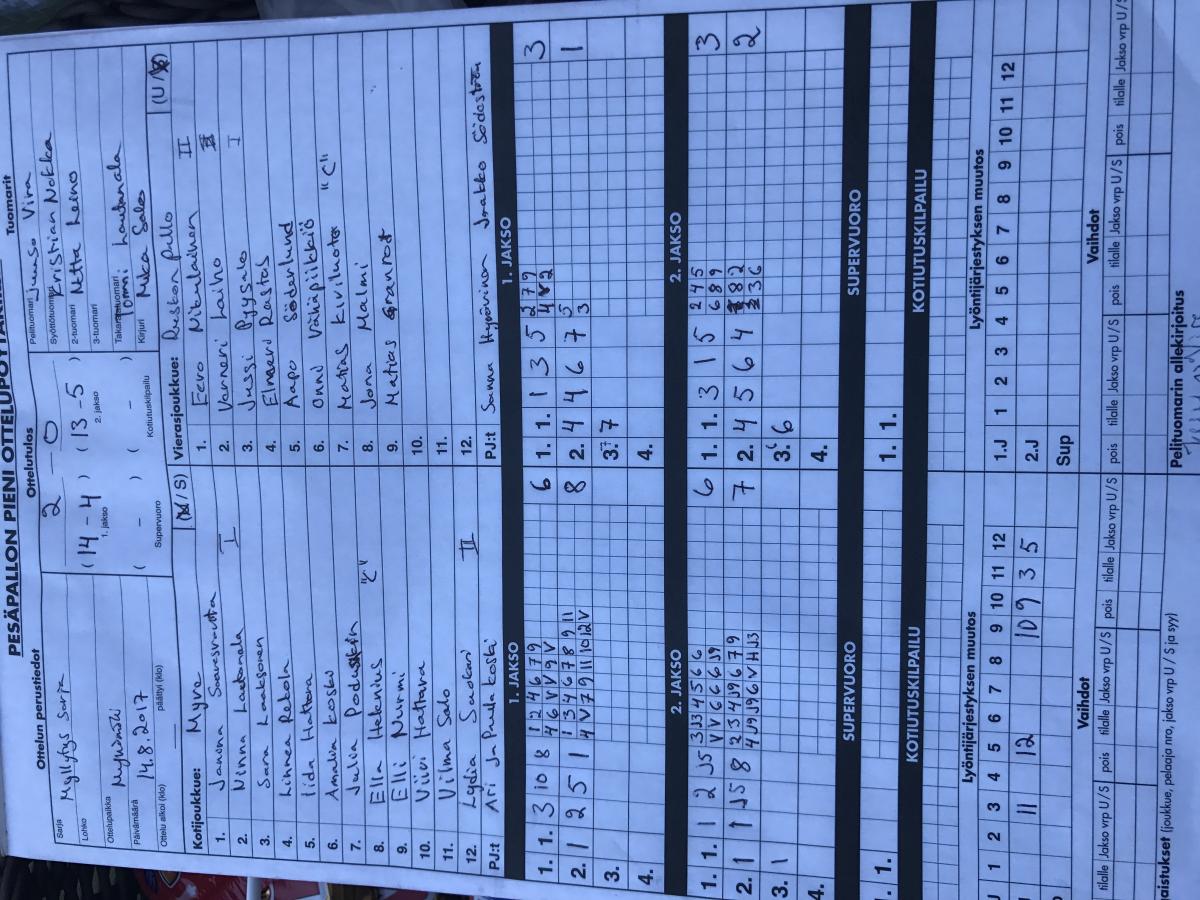 PESÄPALLON PIENI OTTELUPÖYTÄKIRJA
Ottelun perustiedot
Sarja Myllyfys Sarja
Lohko
Ottelupaikka Mynämäki
Päivämäärä 14.8.2017
Ottelu alkoi (klo) päättyi (klo)
Ottelutulos
2 - 0
( 14 - 4 ) ( 13 - 5 )
1. jakso 2. jakso
( - ) ( - )
Supervuoro Kotiutuskilpailu
Tuomarit
Pelituomari Juuso Vira
Syöttötuomari Kristian Nokka
2-tuomari Netta Leino
3-tuomari
Takarajatuomari Tommi Lautanala
Kirjuri Mika Salo
Kotijoukkue: Myve (U / S)
1. Janona
2. Ninna I
3. Sara Laaksonen
4. Linnea Rekola
5. Iida Hattara
6. Amalia Kosku
7. Julia
8. Ella Hakenius "C"
9. Elli Nurmi
10. Viivi Hattara
11. Vilma Salo
12. Lydia Suokari II
PJ:t Ari ja Paula Koski
Vierasjoukkue: Ruskon pallo (U / S)
1. Eero Mikulainen II
2. Verneri Laiho
3. Jussi Pyysalo I
4. Elmeri Rastas
5. Aapo Söderlund
6. Onni Vähäpiikkiö
7. Matias Kiviluoto "C"
8. Jona Malmi
9. Matias Granroth
10.
11.
12.
PJ:t Sanna Hyövinen Jaakko Södeström
1. JAKSO
1. 1. 3 10 8 1 2 4 6 7 9 6
4 6 V V 9 V
2. 1 2 5 1 1 3 4 6 7 8 9 11 8
4 V 7 9 11 10 12 V
3.
4.
1. JAKSO
1. 1. 1 3 5 2 7 9 3
4 V 2
2. 4 4 6 7 5 1
3
3. 7
4.
2. JAKSO
1. 1. 1 2 J5 3 J3 4 5 6 6 6
V V 6 6 6 J9
2. 1 1 J5 8 2 3 4 J9 6 7 9 7
4 J9 J9 6 V H J3
3. 1
4.
2. JAKSO
1. 1. 3 1 5 2 4 5 3
6 8 9
2. 4 5 6 4 8 2 2
3 6
3. 6
4.
SUPERVUORO
1. 1.
SUPERVUORO
1. 1.
KOTIUTUSKILPAILU
KOTIUTUSKILPAILU
Lyöntijärjestyksen muutos
1 2 3 4 5 6 7 8 9 10 11 12
11 12 10 9 3 5
Lyöntijärjestyksen muutos
1.J 1 2 3 4 5 6 7 8 9 10 11 12
2.J
Sup
Vaihdot
tilalle Jakso vrp U/S pois tilalle Jakso vrp U/S pois tilalle Jakso vrp U/S
Vaihdot
pois tilalle Jakso vrp U/S pois tilalle Jakso vrp U/S pois tilalle Jakso vrp U/S
gaistukset (joukkue, pelaaja nro, jakso vrp U / S ja syy)
Pelituomarin allekirjoitus